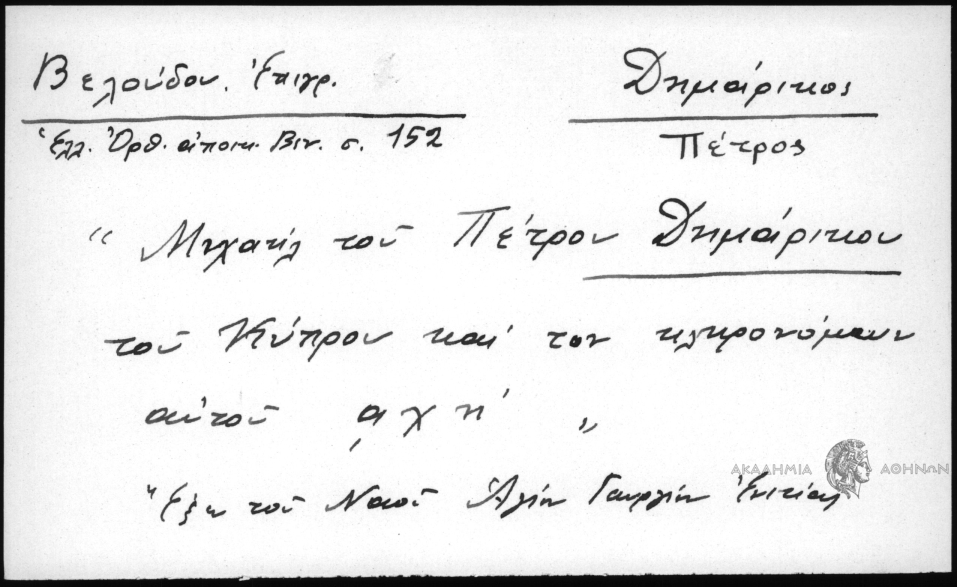 Βελούδου. Ἐπιγρ.
Ἑλλ. Ὀρθ. ἀποικ. Βεν. σ. 152
Δημάρικος
Πέτρος
“ Μιχαὴλ τοῦ Πέτρου Δημάρικου
τοῦ Κύπρου καὶ των κληρονόμων
αὐτοῦ ͵αχη΄ „
Ἔξω τοῦ Ναοῦ Ἁγίου Γεωργίου
ΑΚΑΔΗΜΙΑ ΑΘΗΝΩΝ